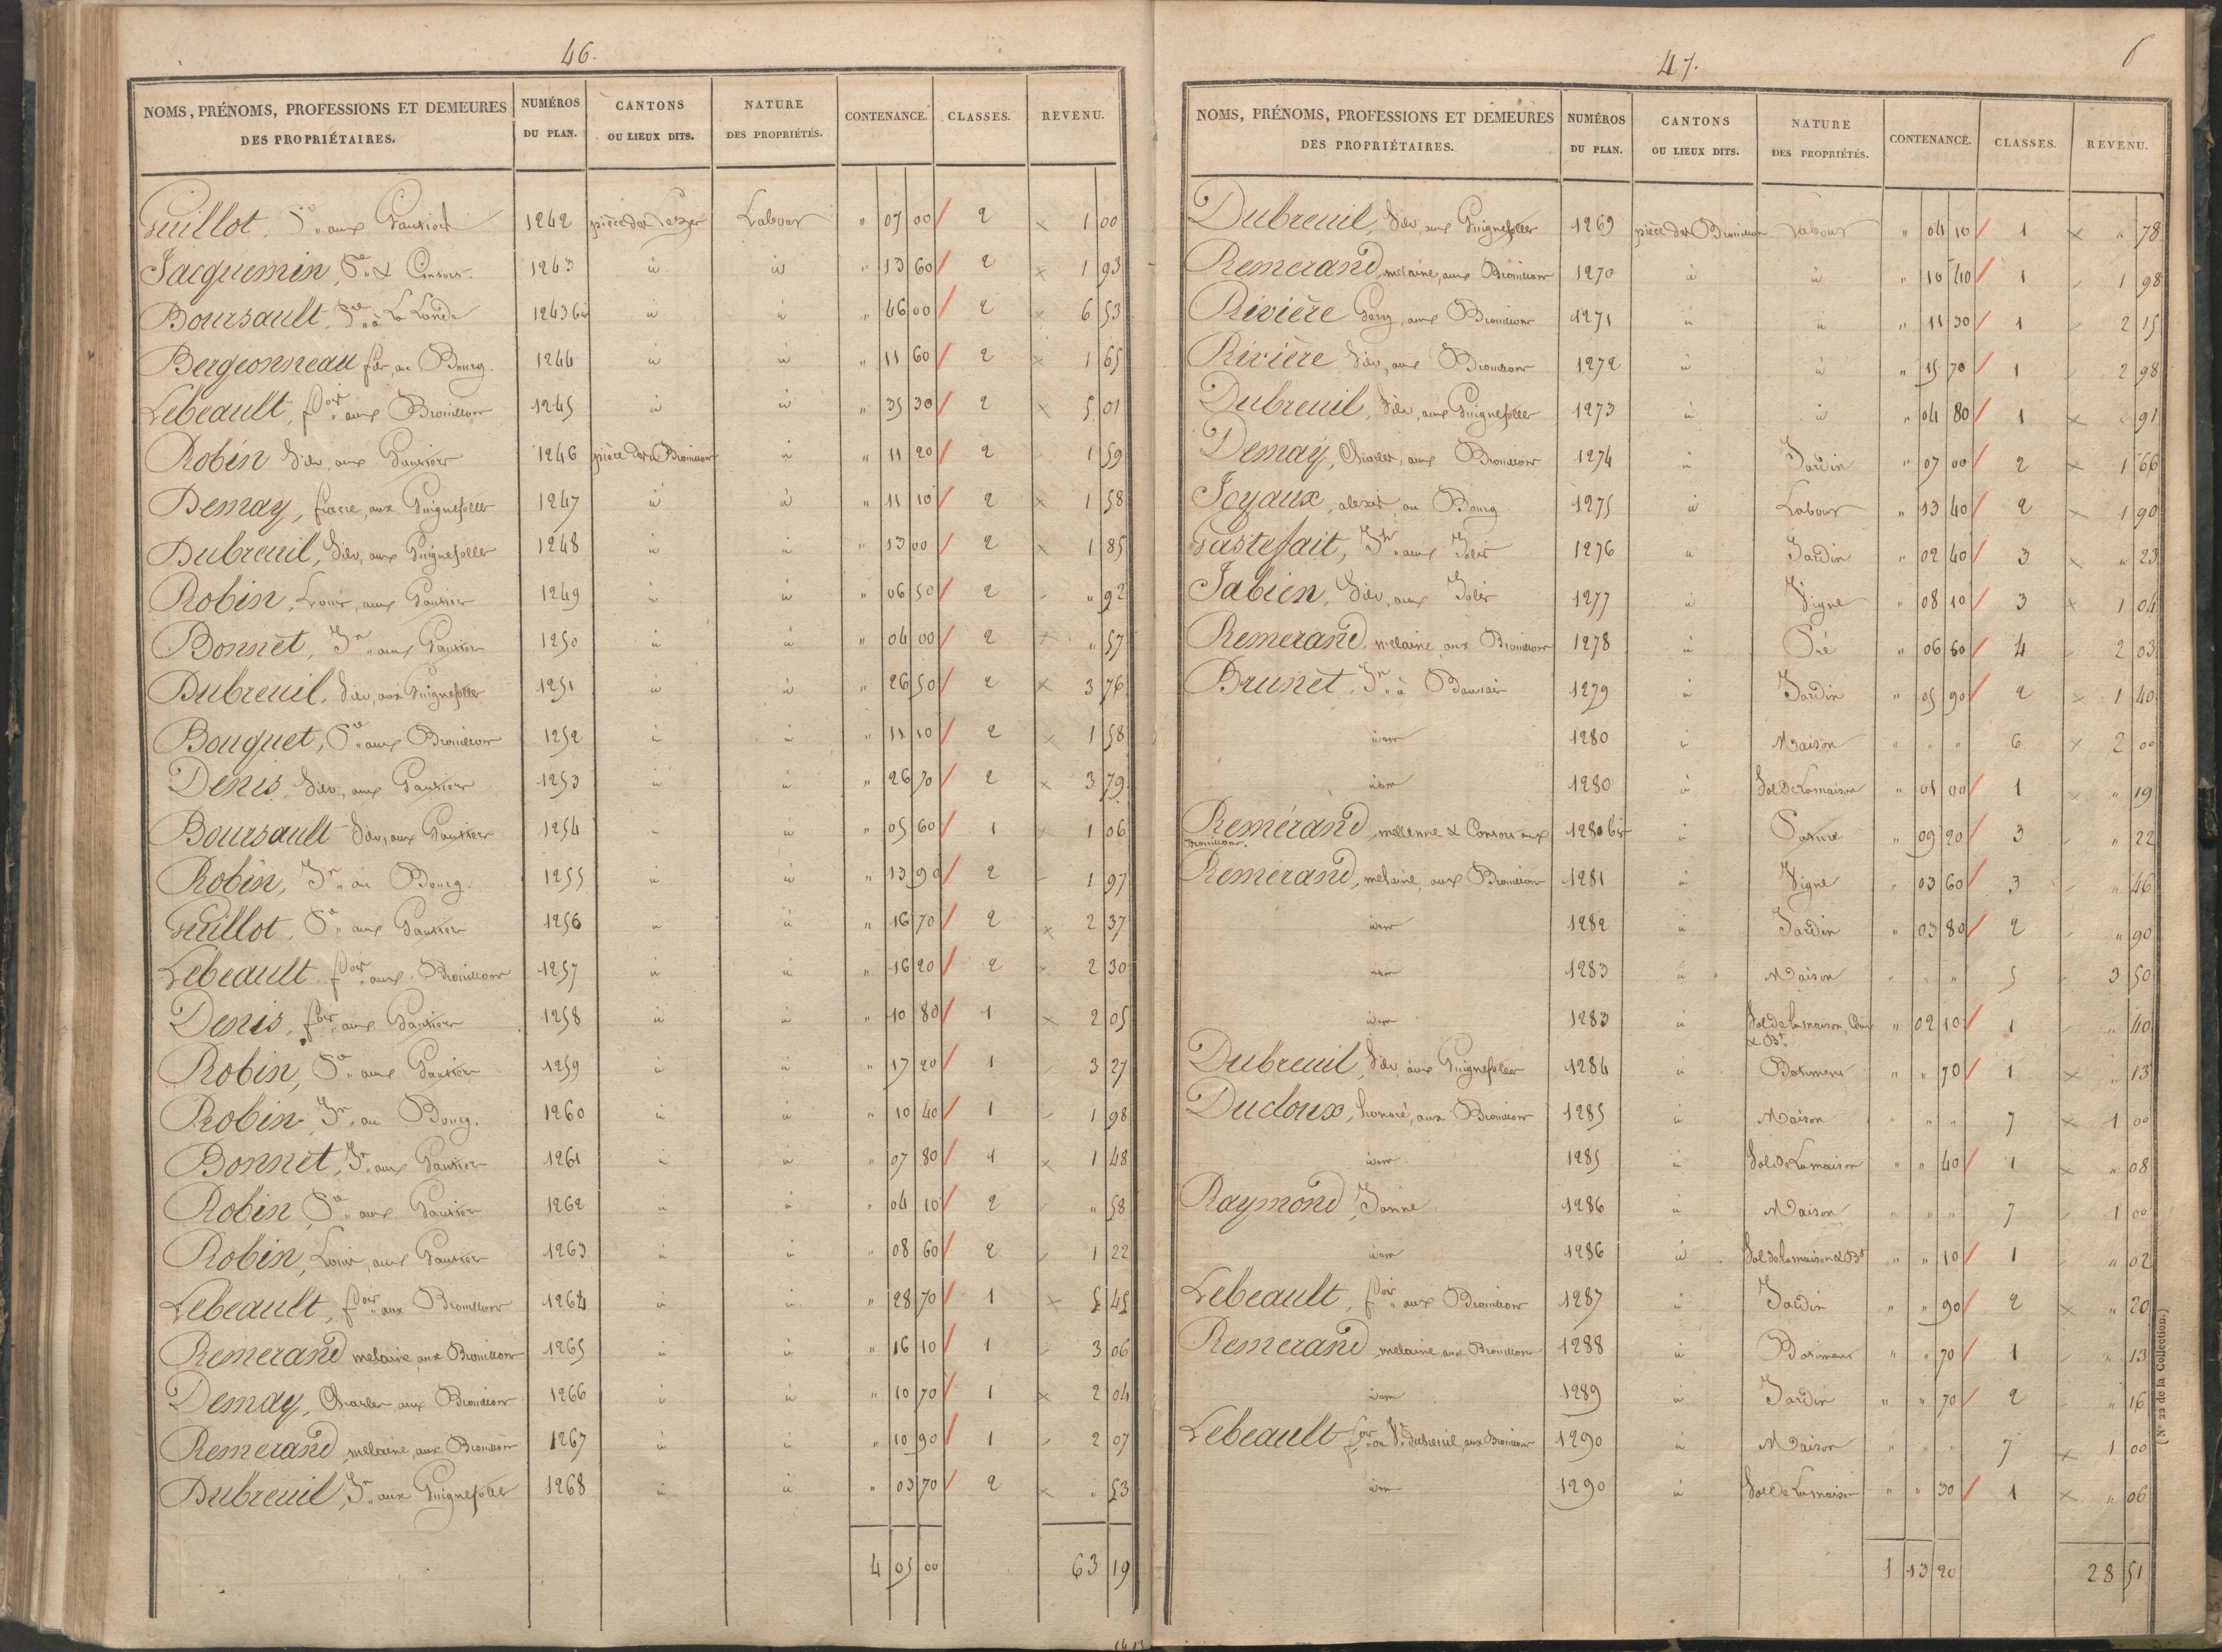 46.
NOMS, PRÉNOMS, PROFESSIONS ET DEMEURES DES PROPRIÉTAIRES. NUMÉROS DU PLAN. CANTONS OU LIEUX DITS. NATURE DES PROPRIÉTÉS. CONTENANCE. CLASSES. REVENU.
Guillot, aux 1242 pièce des Labour " 07 00 2 1 00
Jacquemin, Se & Consors 1243 id id " 13 60 2 1 93
Boursault, Sve à La Lande 1243 bis id id " 46 00 2 6 53
Bergeonneau fdr, au Bourg 1244 id id " 11 60 2 1 65
Lebeault, fçois aux Brouillons 1245 id id " 35 30 2 5 01
Robin Silv, aux Gautiers 1246 pièce des Brouillons id " 11 20 2 1 59
Demay, fiacre, aux Guignefolles 1247 id id " 11 10 2 1 58
Dubreuil, Silv, aux Guignefolles 1248 id id " 13 00 2 1 85
Robin, Louis, aux Gautiers 1249 id id " 06 50 2 " 92
Bonnet, Jn aux Gautiers 1250 id id " 04 00 2 " 57
Dubreuil, Silv, aux Guignefolles 1251 id id " 26 50 2 3 76
Bouquet, Sve aux Brouillons 1252 id id " 11 10 2 1 58
Denis, Silv, aux Gautiers 1253 id id " 26 70 2 3 79
Boursault Silv, aux Gautiers 1254 id id " 05 60 1 1 06
Robin, Jn au Bourg 1255 id id " 13 90 2 1 97
Guillot, Se aux Gautiers 1256 id id " 16 70 2 2 37
Lebeault fçois aux Brouillons 1257 id id " 16 20 2 2 30
Denis, fçois aux Gautiers 1258 id id " 10 80 1 2 05
Robin, Sve aux Gautiers 1259 id id " 17 20 1 3 27
Robin, Jn au Bourg. 1260 id id " 10 40 1 1 98
Bonnet, Jn aux Gautiers 1261 id id " 07 80 1 1 48
Robin, Sve aux Gautiers 1262 id id " 04 10 2 " 58
Robin, Louis, aux Gautiers 1263 id id " 08 60 2 1 22
Lebeault, fçois aux Brouillons 1264 id id " 28 70 1 5 45
Remerand melaine, aux Brouillons 1265 id id " 16 10 1 3 06
Demay, Charles, aux Brouillons 1266 id id " 10 70 1 2 04
Remerand, melaine, aux Brouillons 1267 id id " 10 90 1 2 07
Dubreuil, Jn aux Guignefolles 1268 id id " 03 70 2 " 53
4 05 00 63 19
47.
6
NOMS, PRÉNOMS, PROFESSIONS ET DEMEURES DES PROPRIÉTAIRES. NUMÉROS DU PLAN. CANTONS OU LIEUX DITS. NATURE DES PROPRIÉTÉS. CONTENANCE. CLASSES. REVENU.
Dubreuil, Silv, aux Guignefolles 1269 pièce des Brouillons Labour " 04 10 1 " 78
Remerand, melaine, aux Brouillons 1270 id id " 10 40 1 1 98
Rivière Georg, aux Brouillons 1271 id id " 11 30 1 2 15
Rivière Silv, aux Brouillons 1272 id id " 15 70 1 2 98
Dubreuil, Silv, aux Guignefolles 1273 id id " 04 80 1 " 91
Demay, Charles, aux Brouillons 1274 id Jardin " 07 00 2 1 66
Joyaux, alexis, au Bourg 1275 id Labour " 13 40 2 1 90
Gastefait, aux Jolis 1276 id Jardin " 02 40 3 " 23
Jabien, Silv, aux Jolis 1277 id Vigne " 08 10 3 1 04
Remerand, melaine, aux Brouillons 1278 id Pré " 06 60 4 2 03
Brunet, Jn à 1279 id Jardin " 05 90 2 1 40
idem 1280 id Maison " " " 6 2 00
idem 1280 id Sol de La maison " 01 00 1 " 19
Remérand, mellenne & Consors aux Brouillons. 1280 bis id Pature " 09 20 3 " 22
Remerand, melaine, aux Brouillons 1281 id Vigne " 03 60 3 " 46
idem 1282 id Jardin " 03 80 2 " 90
idem 1283 id Maison " " " 5 3 50
idem 1283 id Sol de la maison, Cour & Bt " 02 10 1 " 40
Dubreuil, Silv, aux Guignefolles 1284 id Batiment " " 70 1 " 13
Ducloux, honoré, aux Brouillons 1285 id Maison " " " 7 1 00
idem 1285 id Sol de La maison " " 40 1 " 08
Raymond, Janne 1286 id Maison " " " 7 1 00
idem 1286 id Sol de la maison & Bt " " 10 1 " 02
Lebeault, fçois aux Brouillons 1287 id Jardin " " 90 2 " 20
Remerand, melaine, aux Brouillons 1288 id Batiment " " 70 1 " 13
idem 1289 id Jardin " " 70 2 " 16
Lebeault fçois ou Ve dubreuil, aux Brouillons 1290 id Maison " " " 7 1 00
idem 1290 id Sol de La maison " " 30 1 " 06
1 13 20 28 51
(N° 22 de la Collection.)